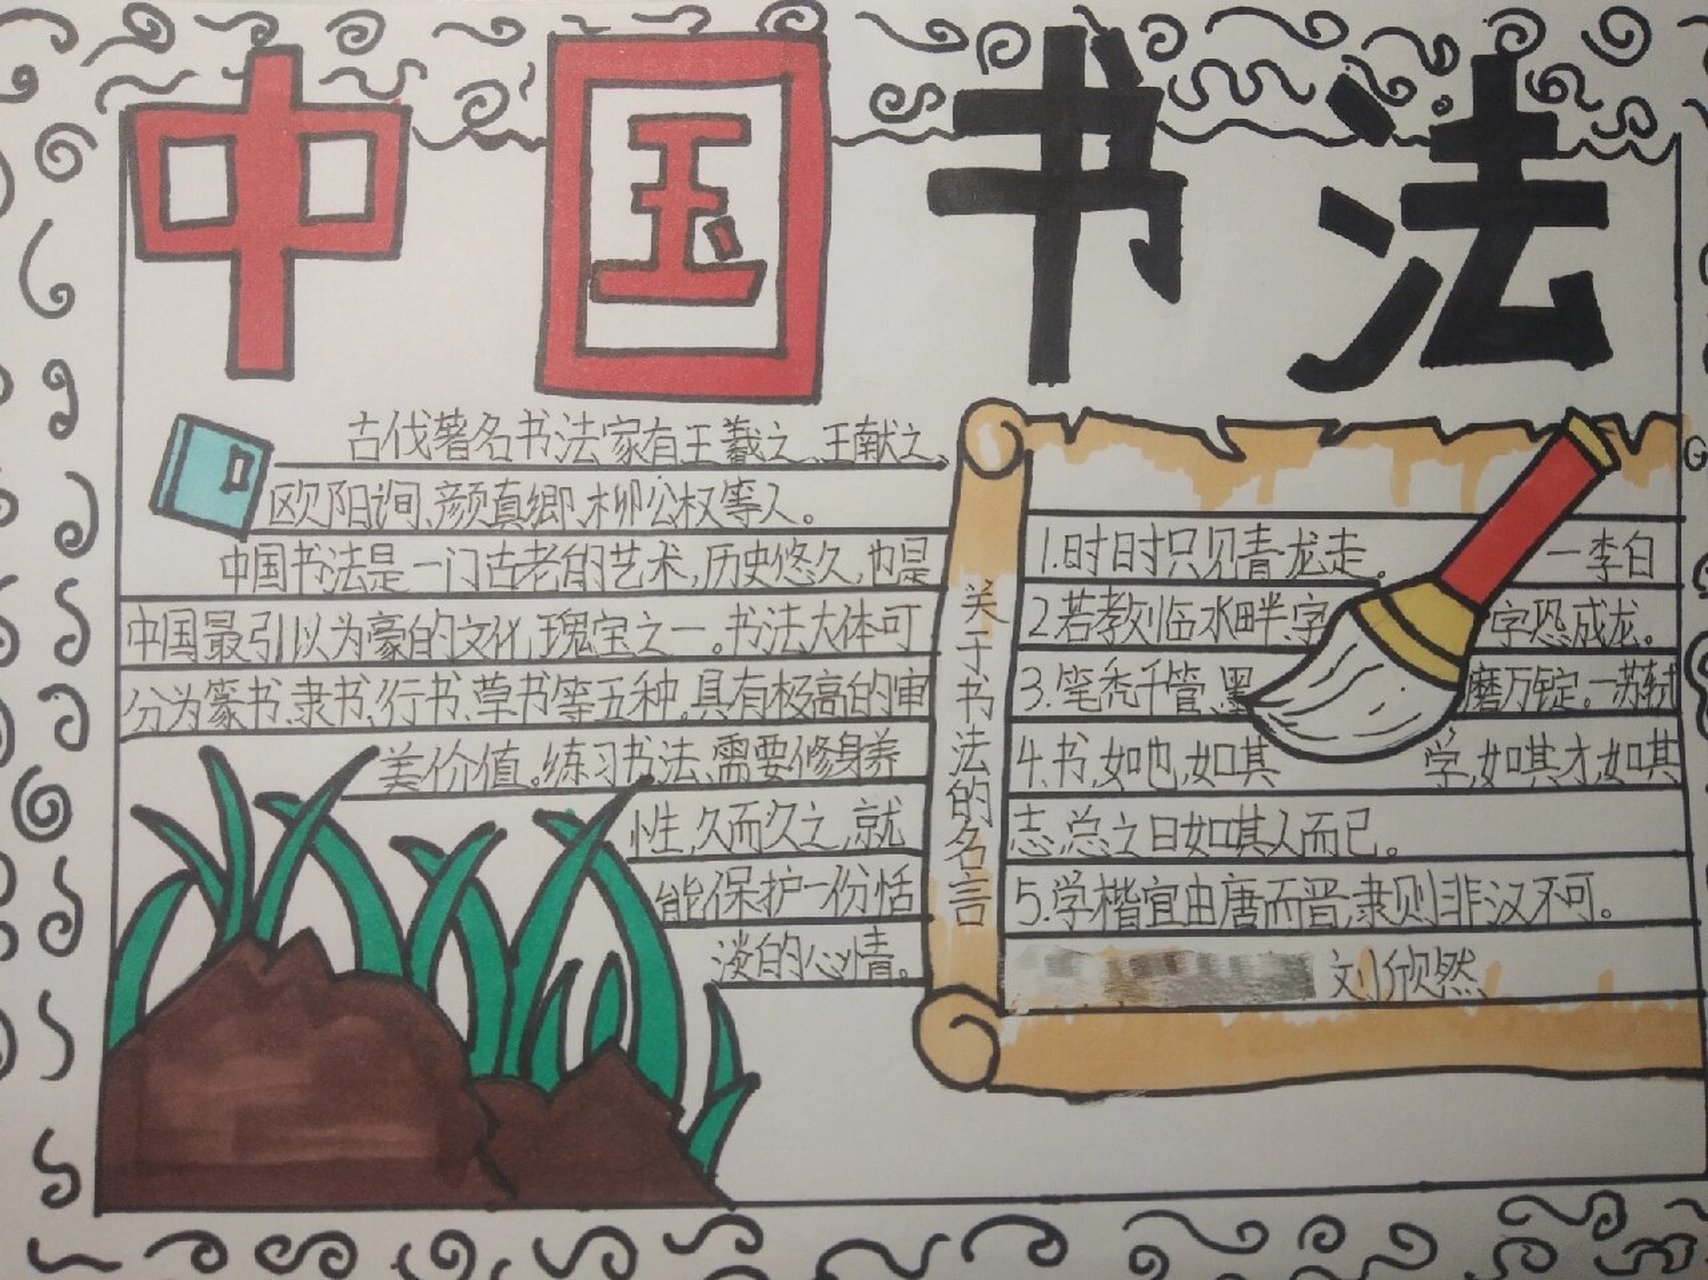 中国书法
古伐著名书法家有王羲之、王献之、
欧阳询、颜真卿、柳公权等人。
中国书法是一门古老的艺术,历史悠久,也是
中国最引以为豪的文化瑰宝之一。书法大体可
分为篆书、隶书、行书、草书等五种。具有极高的审
美价值。练习书法、需要修身养
性,久而久之,就
能保护一份恬
淡的心情。
关于书法的名言
1.时时只见青龙走。 一李白
2若教临水畔,字 字恐成龙。
3.笔秃千管、墨 磨万锭。一苏轼
4.书,如也,如其 学,如其才,如其
志,总之曰如其人而已。
5.学楷宜由唐而晋,隶则非汉不可。
刘欣然